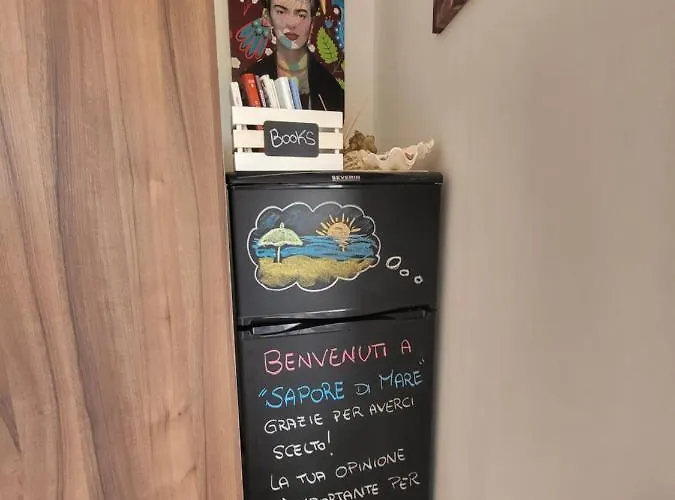 BOOKS
SEVERIN
BENVENUTI A
"SAPORE DI MARE"
GRAZIE PER AVERCI
SCELTO!
LA TUA OPINIONE
IMPORTANTE PER